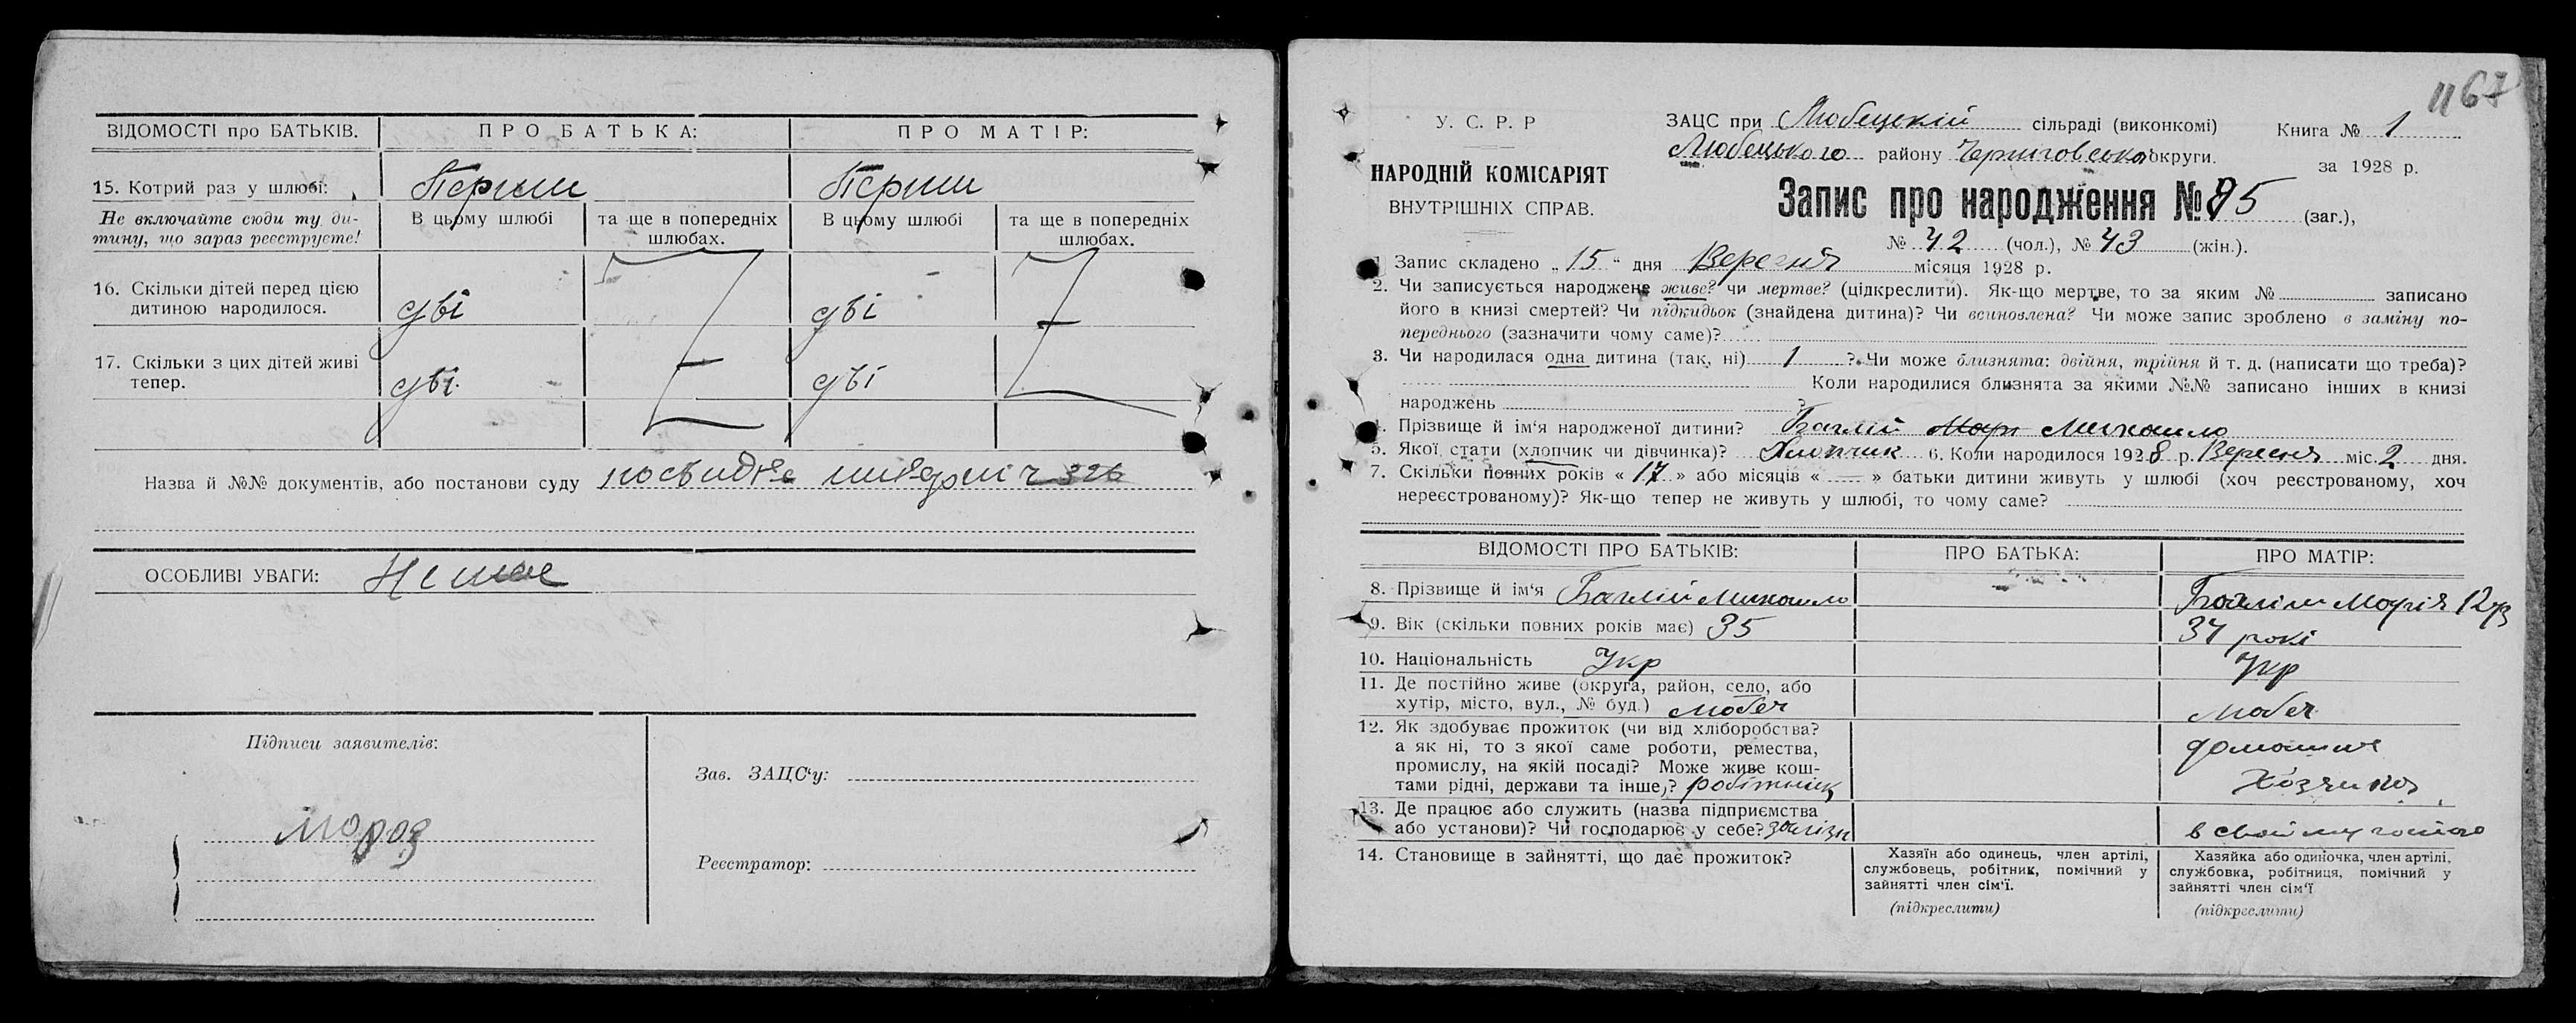 ВІДОМОСТІ про БАТЬКІВ.
ПРО БАТЬКА:
ПРО МАТІР:
15. Котрий раз у шлюбі:
Перший
Перший
Не включайте сюди ту ди-
тину, що зараз реєструєте!
В цьому шлюбі
та ще в попередніх
шлюбах.
В цьому шлюбі
та ще в попередніх
шлюбах.
16. Скільки дітей перед цією
дитиною народилося.
дві
дві
17. Скільки з цих дітей живі
тепер.
дві
дві
Назва й №№ документів, або постанови суду
326
ОСОБЛИВІ УВАГИ: Немае
Підписи заявителів:
Мороз
Зав. ЗАЦС‘у:
Реєстратор:
1167
У. С. Р. Р
НАРОДНІЙ КОМІСАРІЯТ
ВНУТРІШНІХ СПРАВ.
ЗАЦС при Любецкій сільраді (виконкомі)
Книга № 1
Любецького району Черниговської округи.
за 1928 р.
Запис про народження № 85 (заг.),
№ 42 (чол.), № 43 (жін.).
1. Запис складено „15“ дня Вересня місяця 1928 р.
2. Чи записується народжене живе? чи мертве? (підкреслити). Як-що мертве, то за яким № записано
його в книзі смертей? Чи підкидьок (знайдена дитина)? Чи всиновлена? Чи може запис зроблено в заміну по-
переднього (зазначити чому саме)?
3. Чи народилася одна дитина (так, ні) 1 ? Чи може близнята: двійня, трійня й т. д. (написати що треба)?
Коли народилися близнята за якими №№ записано інших в книзі
народжень ?
4. Прізвище й ім‘я народженої дитини? Баглій Мар Михаило
5. Якої стати (хлопчик чи дівчинка)? Хлопчик 6. Коли народилося 1928 р. Вересня міс. 2 дня.
7. Скільки повних років « 17 » або місяців « — » батьки дитини живуть у шлюбі (хоч реєстрованому, хоч
нереєстрованому)? Як-що тепер не живуть у шлюбі, то чому саме?
ВІДОМОСТІ ПРО БАТЬКІВ:
ПРО БАТЬКА:
ПРО МАТІР:
8. Прізвище й ім‘я Баглій Михаило
Баглій Марія
9. Вік (скільки повних років має) 35
34 рокі
10. Національність Укр
Укр
11. Де постійно живе (округа, район, село, або
хутір, місто, вул., № буд.) Любеч
Любеч
12. Як здобуває прожиток (чи від хліборобства?
а як ні, то з якої саме роботи, ремества,
промислу, на якій посаді? Може живе кош-
тами рідні, держави та інше)? робітник
домашня
Хозяйка
13. Де працює або служить (назва підприємства
або установи)? Чи господарює у себе?
14. Становище в зайнятті, що дає прожиток?
Хазяїн або одинець, член артілі,
службовець, робітник, помічний у
зайнятті член сім‘ї.
(підкреслити)
Хазяйка або одиночка, член артілі,
службовка, робітниця, помічний у
зайнятті член сім‘ї
(підкреслити)